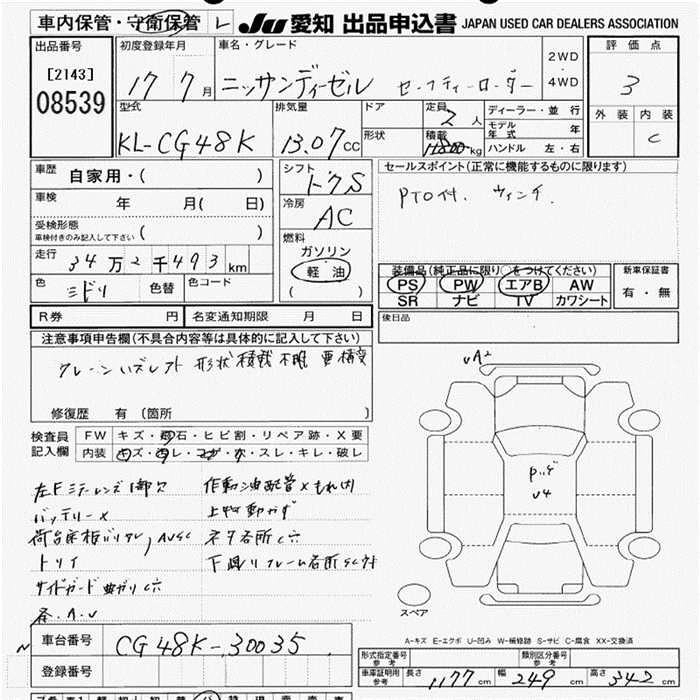 車内保管・守衛保管 レ JU 愛知 出品申込書 JAPAN USED CAR DEALERS ASSOCIATION
出品番号
[2143]
08539
初度登録年月
17 7月
車名・グレード
ニッサンディーゼル セーフティーローダー
2WD
・
4WD
評価点
3
外装 内装
C
型式
KL-CG48K
排気量
13.07cc
ドア
形状
定員
2人
積載
11800kg
ディーラー・並行
モデル年式 年
ハンドル 左・右
車歴
自家用・( )
車検
年 月( 日)
受検形態
車検付きのみ記入して下さい ( )
走行
34万2千493km
色
ミドリ
色替
色コード
シフト
ドクS
冷房
AC
燃料
ガソリン
軽油
( )
セールスポイント(正常に機能するものに限ります)
PTO付. ウィンチ.
装備品(純正品に限り○をつけてください)
PS PW エアB AW
SR ナビ TV カワシート
新車保証書
有・無
R券 円
名変通知期限 月 日
後日品
注意事項申告欄(不具合内容等は具体的に記入して下さい)
クレーン ハズレ 形状 積載 不明 要 構変
修復歴 有(箇所 )
検査員
記入欄
FW キズ・飛石・ヒビ割・リペア跡・X要
内装 キズ・汚レ・コゲ・穴・スレ・キレ・破レ
左Fミラーレンズ1部欠
バッテリーX
荷台床板バリワレ, AUSC
トリイ
サイドガード曲ガリC穴
各.A.U
作動油配管Xもれ内
上物動かず
ネタ各所C穴
下廻リフレーム各所SC付
UA2
U4
スペア
A-キズ E-エクボ U-凹み W-補修跡 S-サビ C-腐食 XX-交換済
車台番号
CG48K-30035
登録番号
形式指定番号
参考
類別区分番号
参考
車庫証明用
参考
長さ 1177cm 幅 249cm 高さ 342cm